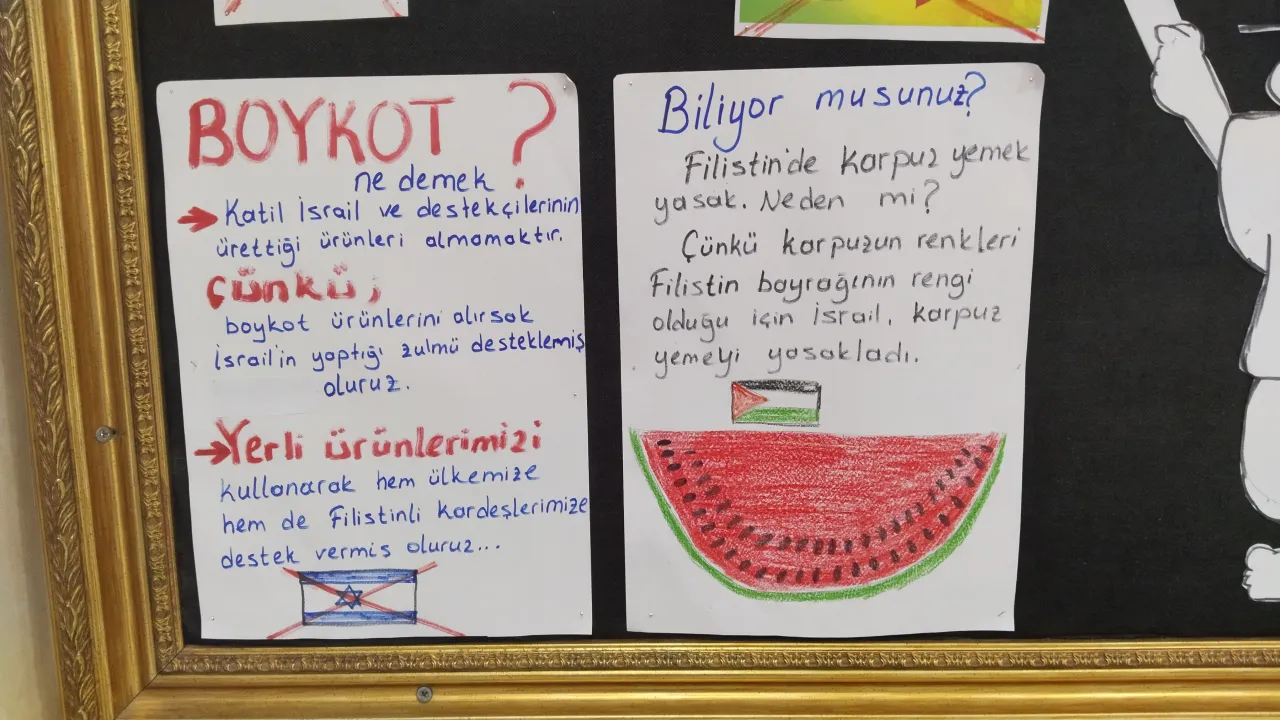 BOYKOT ?
ne demek
Katil İsrail ve destekçilerinin
ürettiği ürünleri almamaktır.
ÇÜNKÜ;
boykot ürünlerini alırsak
İsrail'in yaptığı zulmü desteklemiş
oluruz.
Yerli ürünlerimizi
kullanarak hem ülkemize
hem de Filistinli kardeşlerimize
destek vermiş oluruz...
Biliyor musunuz?
Filistin'de karpuz yemek
yasak. Neden mi?
Çünkü karpuzun renkleri
Filistin bayrağının rengi
olduğu için İsrail, karpuz
yemeyi yasakladı.